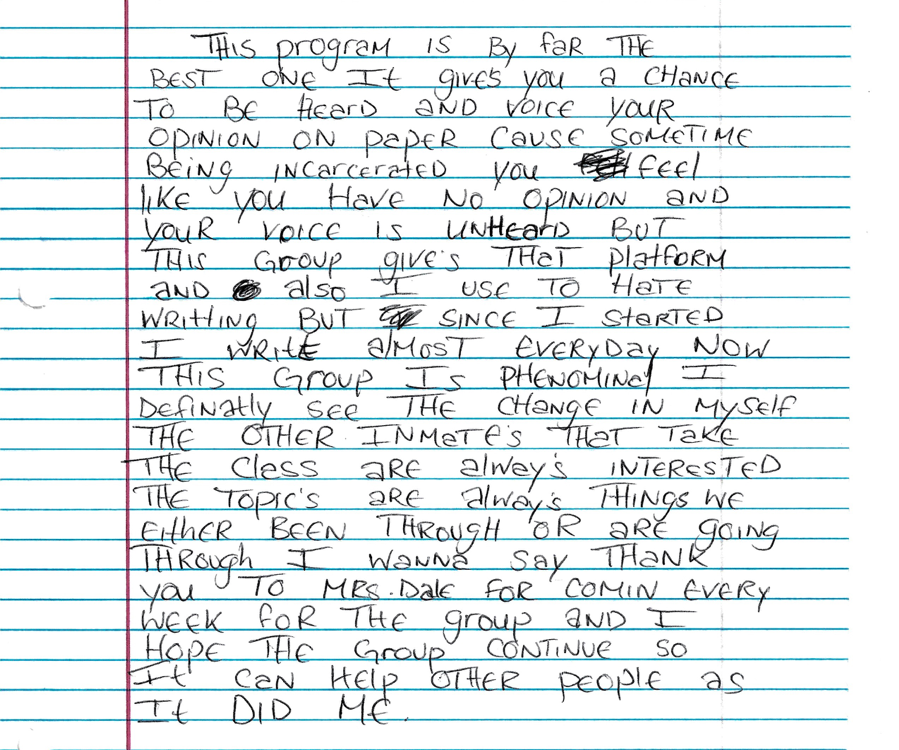 THIS program IS By faR THE
BEST ONE It give's you a CHANCE
TO BE HeaRD aND VOICE youR
OPINION ON PaPER CAUSE SOMETIME
BEiNg INCarceratED you feel
lIKE you HAVE NO OPINION aND
youR VOICE IS UNHeaRD BUT
THIS GROUP give's THaT PlatfoRM
aND also I USE TO HaTE
WRITTINg BUT SINCE I StaRTED
I WRItE alMOST EVERyDay NOW
THIS GROUP Is PHENOMINal I
DEfINatly SEE THE CHaNgE IN MySElf
THE OTHER INMaTE's THaT TaKE
THE Class aRE alway's INTERESTED
THE TOPIC's aRE always's THINgS WE
EItHER BEEN THROUgH OR aRE gOINg
THROUgh I WaNNa Say THaNK
you TO MRS. Dale FOR COMIN EVERy
WEEK foR THE group aND I
HOPE THE GROUP CONTINUE SO
It CaN HElP OTHER PEOPlE as
It DID ME.